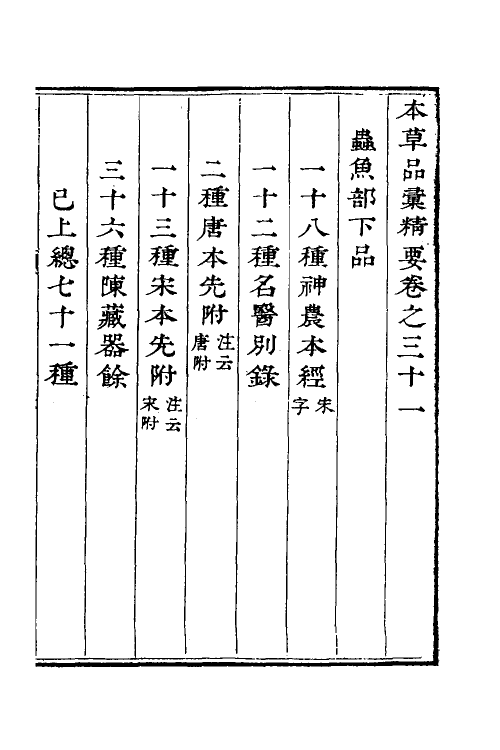 本草品彙精要卷之三十一
蟲魚部下品
一十八種神農本經朱字
一十二種名醫別錄
二種唐本先附注云唐附
一十三種宋本先附注云宋附
三十六種陳藏器餘
已上總七十一種